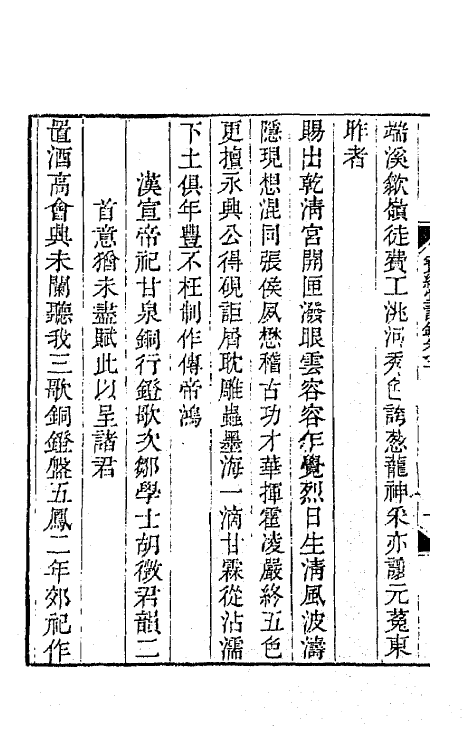 端溪歙嶺徒費工洮河秀色誇蔥蘢神采亦讓元菟東
昨者
賜出乾清宮開匣潑眼雲容容乍覺烈日生清風波濤
隱現想混同張侯夙懋稽古功才華揮霍凌嚴終五色
更擅永興公得硯詎屑耽雕蟲墨海一滴甘霖從沾濡
下土俱年豐不枉制作傳帝鴻
漢宣帝祀甘泉銅行鐙歌次鄒學士胡徵君韻二
首意猶未盡賦此以呈諸君
置酒高會興未闌聽我三歌銅鐙盤五鳳二年郊祀作